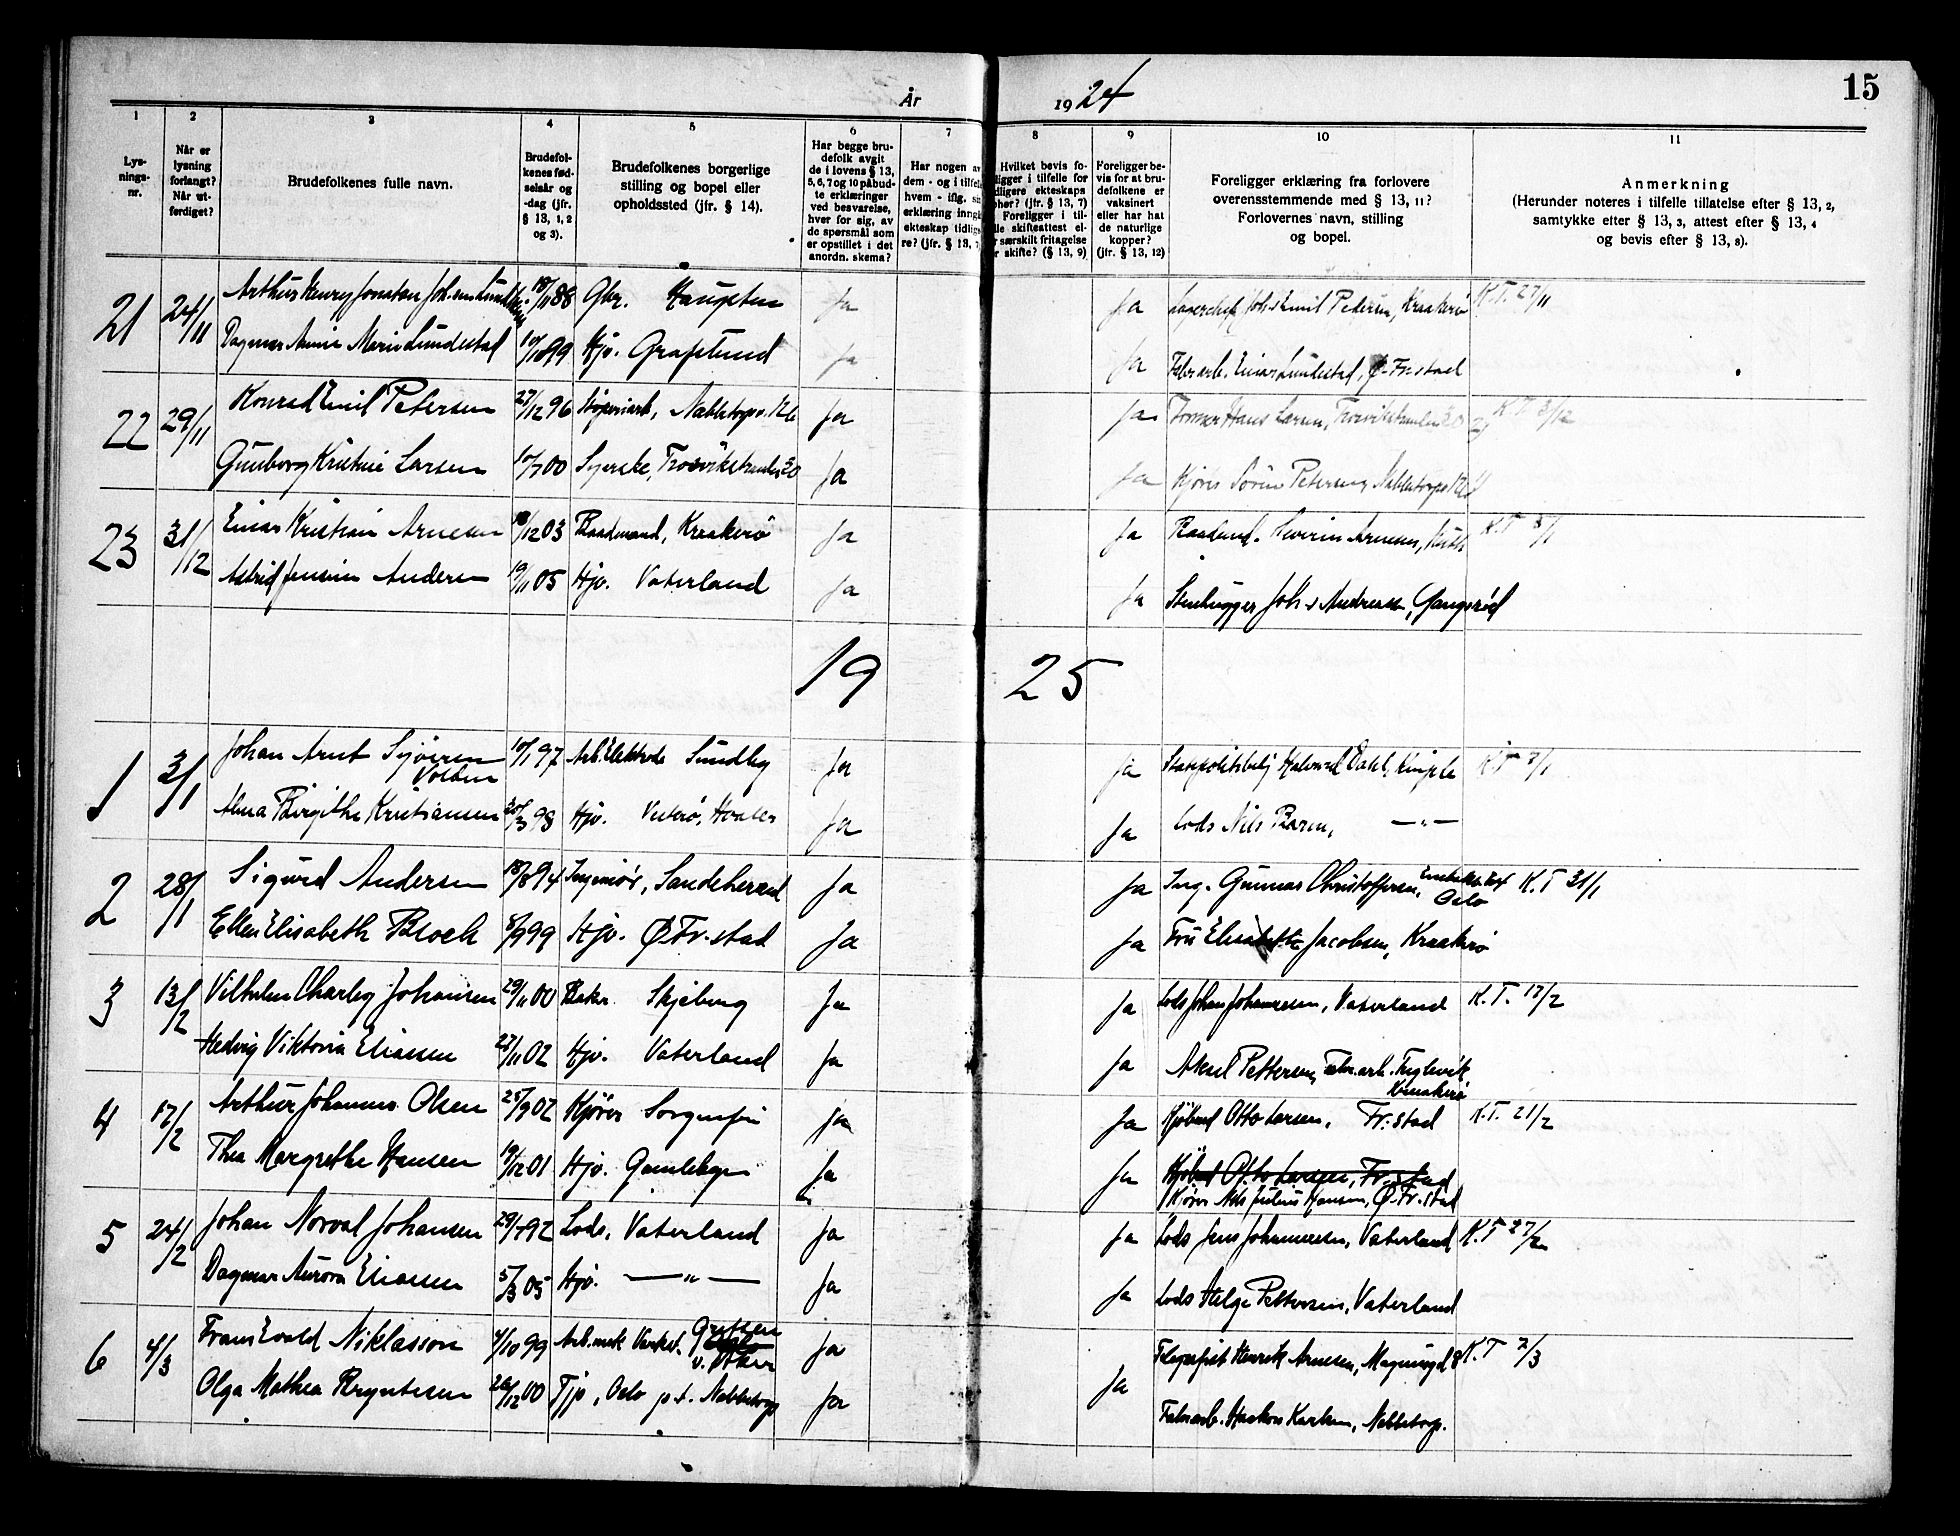 År 1924
15
1 2 3 4 5 6 7 8 9 10 11
Lys-
nings-
nr.
Når er
lysning
forlangt?
Når ut-
ferdiget?
Brudefolkenes fulle navn.
Brudefol-
kenes fød-
selsår og
-dag (jfr.
§ 13, 1, 2
og 3).
Brudefolkenes borgerlige
stilling og bopel eller
opholdssted (jfr. § 14).
Har begge bru-
defolk avgit
de i lovens § 13,
5, 6, 7 og 10 påbud-
te erklæringer
ved besvarelse,
hver for sig, av
de spørsmål som
er opstillet i det
anordn. skema?
Har nogen av
dem - og i tilfelle
hvem - iflg. sin
erklæring inngå
ekteskap tidlige
re? (jfr. § 13, 7
Hvilket bevis fo-
ligger i tilfelle for
dligere ekteskaps
phør? (jfr. § 13, 7)
Foreligger i til-
lle skifteattest el-
r særskilt fritagelse
r skifte? (§ 13, 9)
Foreligger be-
vis for at bru-
defolkene er
vaksinert
eller har hat
de naturlige
kopper?
(jfr. § 13, 12)
Foreligger erklæring fra forlovere
overensstemmende med § 13, 11?
Forlovernes navn, stilling
og bopel.
Anmerkning
(Herunder noteres i tilfelle tillatelse efter § 13, 2,
samtykke efter § 13, 3, attest efter § 13, 4
og bevis efter § 13, 8).
21 24/11 Arthur Henry Jonatan 18/11 88 Gbr. Haugsten Ja Ja Emil Pedersen, Kraakerø K.T. 27/11
Dagmar Annie Marie Lundestad 10/10 99 Hjv. Græslund Ja Ja Fabr.arb. Einar Lundestad, Ø-Fr.stad
22 29/11 Konrad Emil Petersen 27/12 96 Støperiarb, Nabbetorp Ja Ja Former Hans Larsen, Trosvikstranden 30 K.T. 3/12
Gunborg Kristine Larsen 10/7 00 Syerske, Trosvikstranden 30 Ja Ja Kjører Sørin Petersen, Nabbetorp
23 31/12 Einar Kristian Arnesen 18/12 03 Baadmand, Kraakerø Ja Ja Baadmd. Severin Arnesen, K.T 3/1
Astrid Jensine Andersen 19/11 05 Hjv. Vaterland Ja Ja Stenhugger Joh.s Andreassen, Gangsrød
19 25
1 3/1 Johan Arnt Syversen 10/1 97 Arb. Elektrode Sundby Ja Ja Halvard Dahl, K.T 7/1
Volden
Alma Birgithe Kristiansen 30/3 98 Hjv. Vesterø, Hvaler Ja Ja Lods Nils Baren, —"—
2 28/1 Sigurd Andersen 18/8 94 Ingeniør, Sandeherred Ja Ja Ing. Gunnar Christoffersen, Oslo K.T 31/1
Ellen Elisabeth Block 8/9 99 Hjv. Ø Fr.stad Ja Ja Fru Elisabeth Jacobsen, Kraakerø
3 13/2 Vilhelm Charley Johansen 29/11 00 Baker Skjeberg Ja Ja Lods Johan Johannesen, Vaterland K.T. 17/2
Hedvig Viktoria Eliassen 27/11 02 Hjv. Vaterland Ja Ja Aksel Pettersen, Fabr.arb. Fuglevik
Kraakerø
4 17/2 Arthur Johannes Olsen 25/9 02 Kjører Sorgenfri Ja Ja Kjøbmd Otto Larsen, Fr:stad K.T. 21/2
Thea Margrethe Hansen 19/12 01 Hjv. Gamlebyen Ja Ja Kjøbmd Otto Larsen, Fr.stad
Kjører Nils Julius Hansen, Ø.Fr.stad
5 24/2 Johan Norval Johansen 29/7 92 Lods, Vaterland Ja Ja Lods Jens Johannesen, Vaterland K.T 27/2
Dagmar Aurora Eliassen 5/3 05 Hjv. —"— Ja Ja Lods Helge Pettersen, Vaterland
6 4/3 Frans Evald Niklasson 4/10 99 Arb. mek Verksted. Grefsen Ja Ja Telegrafist Henrik Arnesen, K.T 7/3
v. Aker
Olga Mathea Bryntesen 26/12 00 Tjp, Oslo p.t. Nabbetorp Ja Fabr.arb. Haakon Karlsen, Nabbetorp.